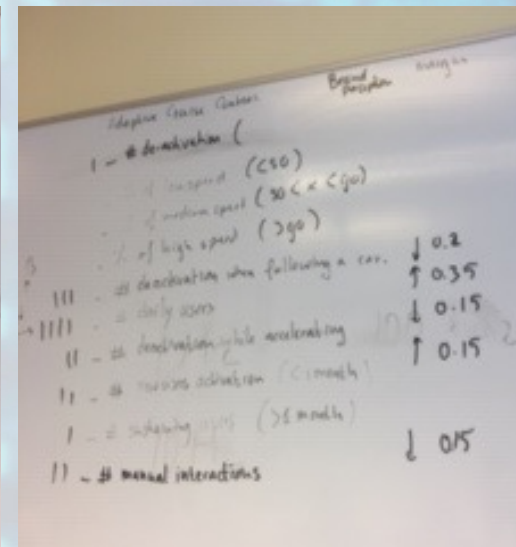 Adaptive Cruise Control
Brand Perception
weight
I - # deactivation (
% of low speed (<50)
% of medium speed (50 < x < 90)
% of high speed (>90)
III - # deactivation when following a car. ↓ 0.2
→ IIII - # daily users ↑ 0.35
II - # deactivation while accelerating ↓ 0.15
II - # activation (<1 month) ↑ 0.15
I - # (>1 month)
II - # manual interactions ↓ 0.15